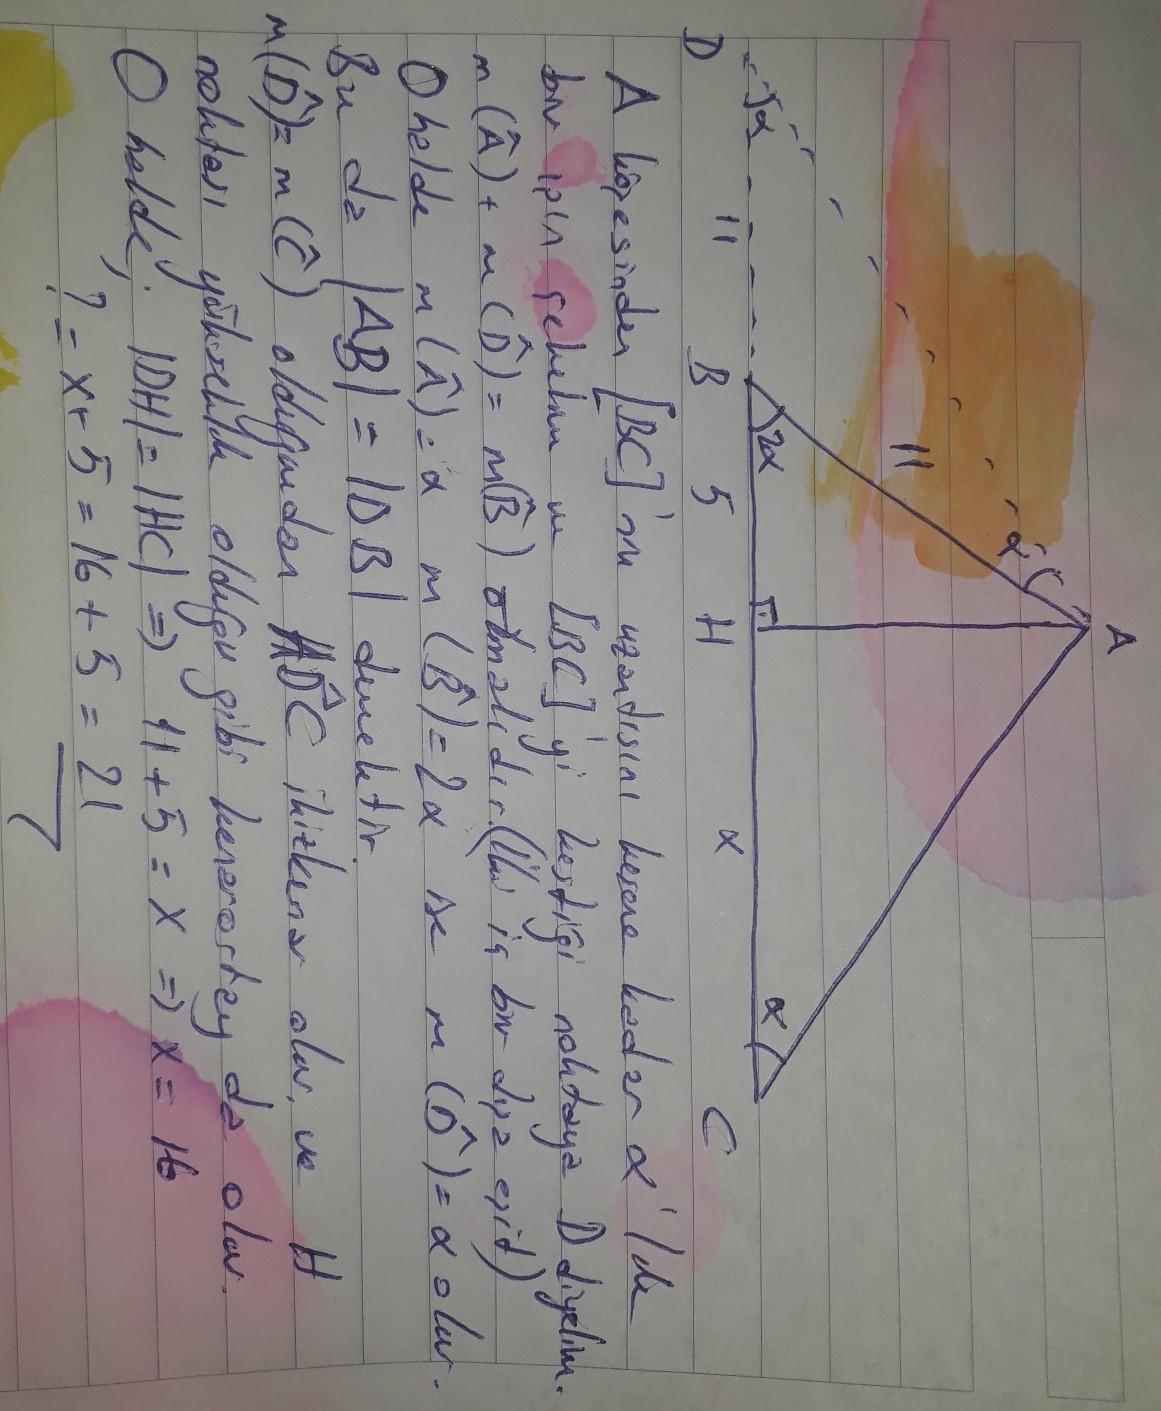 A
α
11
2α
α
α
D 11 B 5 H x C
A köşesinden [BC]'nin uzantısını kesene kadar α'lık
bir ışın çekelim ve [BC]'yi kestiği noktaya D diyelim.
m(Â) + m(D̂) = m(B̂) olmalıdır. (İki iç bir dışa eşit)
O halde m(Â) = α m(B̂) = 2α ise m(D̂) = α olur.
Bu da |AB| = |DB| demektir.
m(D̂) = m(Ĉ) olduğundan AD̂C ikizkenar olur, ve H
noktası yükseklik olduğu gibi kenarortay da olur.
O halde; |DH| = |HC| => 11 + 5 = x => x = 16
? = x + 5 = 16 + 5 = 21